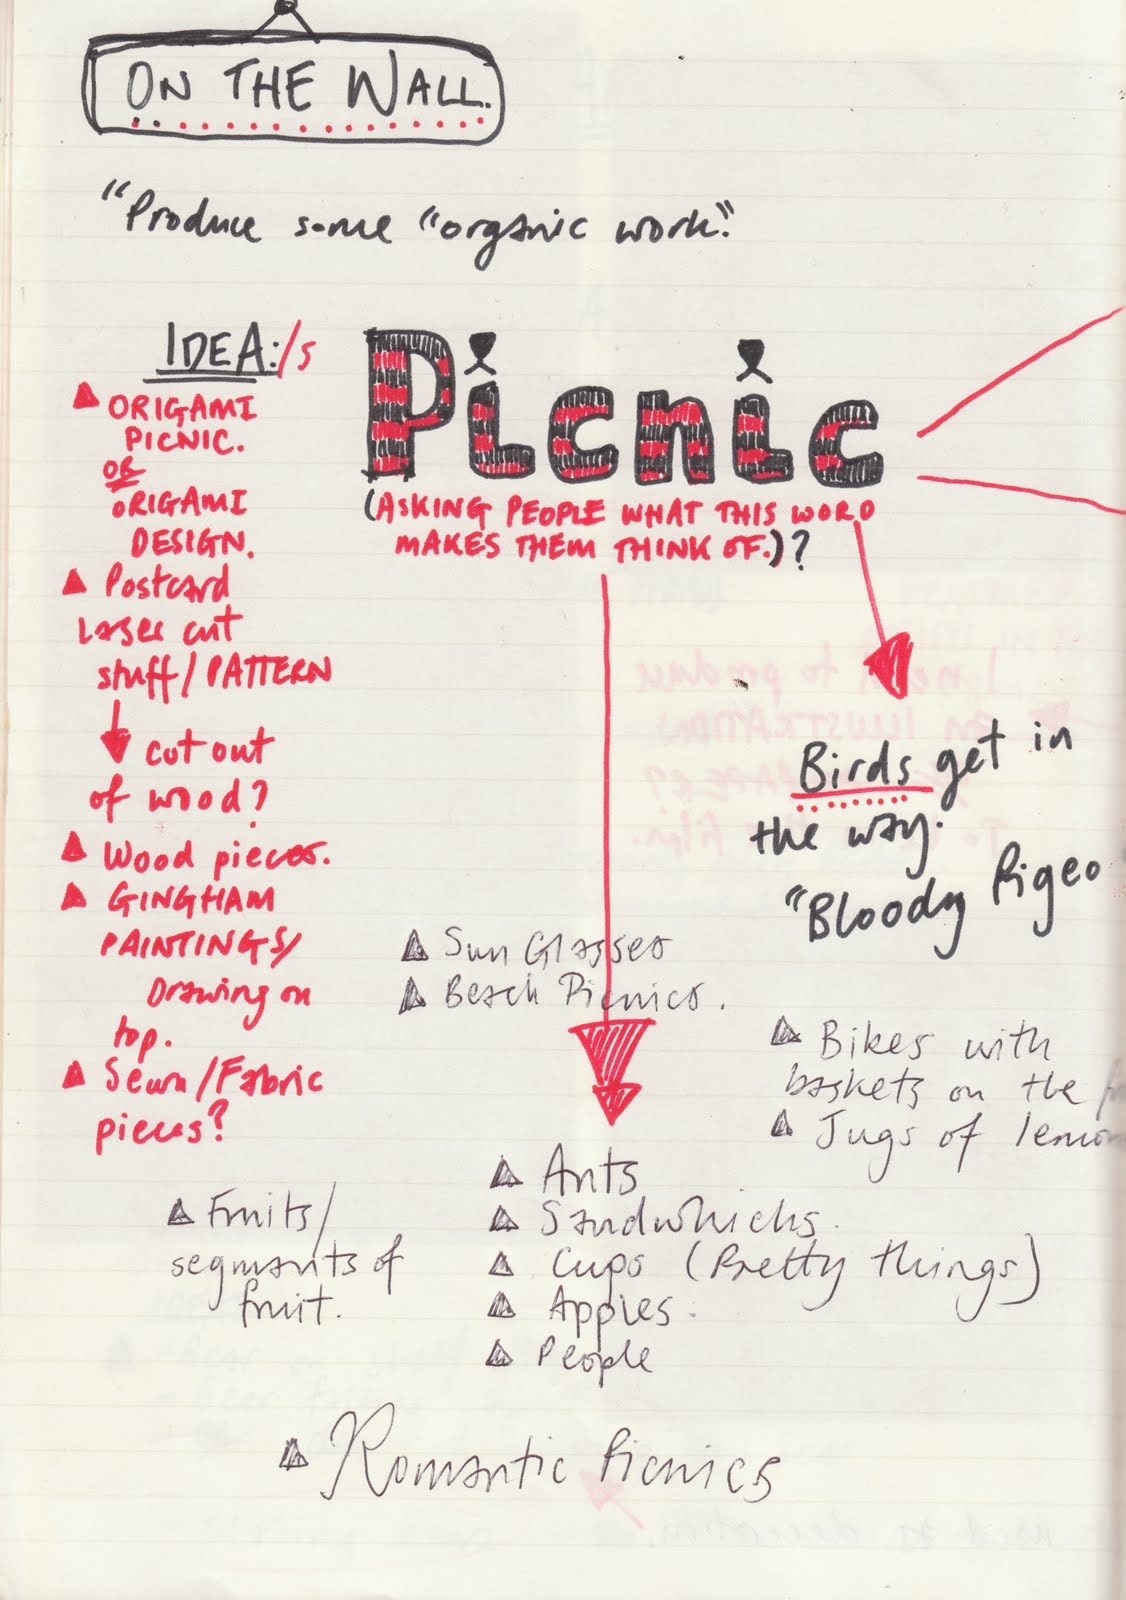 ON THE WALL.
"Produce some "organic work."
IDEA:/s
▲ ORIGAMI
PICNIC.
OR
ORIGAMI
DESIGN.
▲ Postcard
Laser cut
stuff/PATTERN
cut out
of wood?
▲ Wood pieces.
▲ GINGHAM
PAINTINGS/
Drawing on
top.
▲ Sewn/Fabric
pieces?
Picnic
(ASKING PEOPLE WHAT THIS WORD
MAKES THEM THINK OF.)?
Birds get in
the way.
"Bloody Pigeo
▲ Sun Glasses
▲ Beach Picnics.
▲ Bikes with
baskets on the
▲ Jugs of lemon
▲ Ants
▲ Sandwhichs.
▲ Cups (Pretty things)
▲ Apples.
▲ People
▲ Fruits/
segments of
fruit.
▲ Romantic Picnics